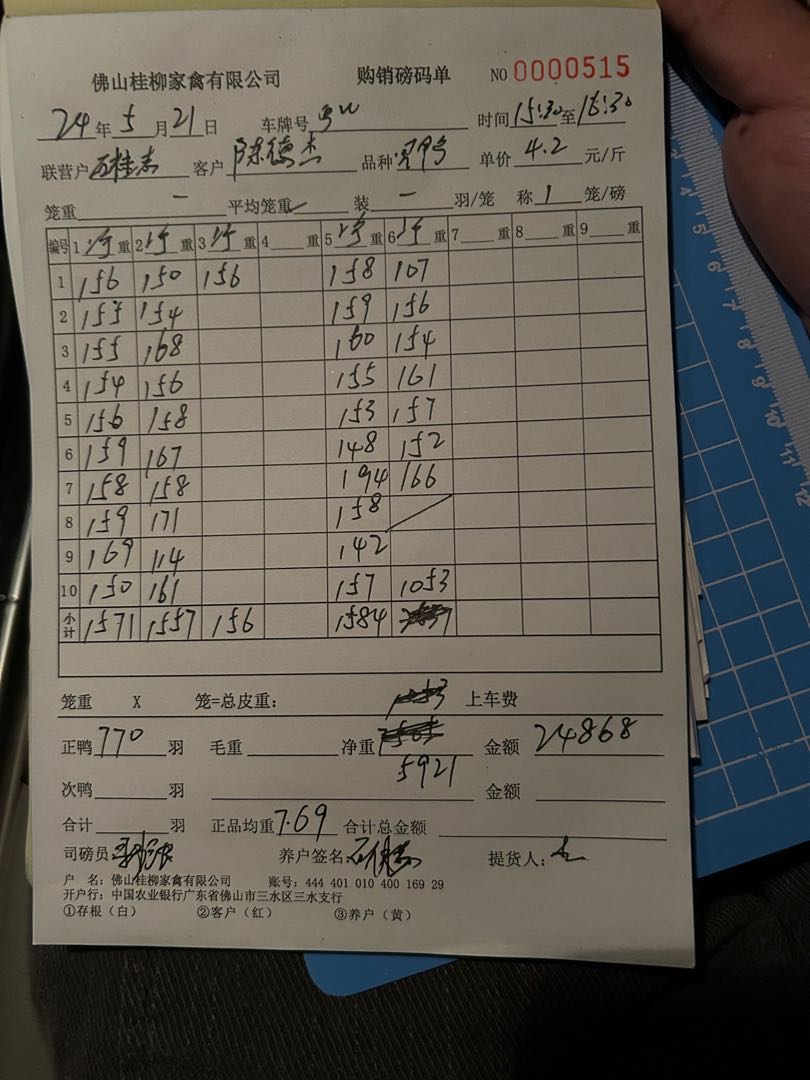 佛山桂柳家禽有限公司 购销磅码单 NO 0000515
24 年 5 月 21 日 车牌号 时间 15:30 至 16:30
联营户 客户 陈德杰 品种 单价 4.2 元/斤
笼重 一 平均笼重 装 一 羽/笼 称 1 笼/磅
编号 1 重 2 重 3 重 4 重 5 重 6 重 7 重 8 重 9 重
1 156 150 156 158 107
2 155 154 159 156
3 155 168 160 154
4 154 156 155 161
5 156 158 153 157
6 159 167 148 152
7 158 158 194 166
8 159 171 158
9 169 114 142
10 150 161 157 1053
小计 1571 1557 156 1584
笼重 X 笼=总皮重： 上车费
正鸭 770 羽 毛重 净重 金额 24868
5921
次鸭 羽 金额
合计 羽 正品均重 7.69 合计总金额
司磅员： 养户签名： 提货人：
户 名：佛山桂柳家禽有限公司 账号：444 401 010 400 169 29
开户行：中国农业银行广东省佛山市三水区三水支行
①存根（白） ②客户（红） ③养户（黄）